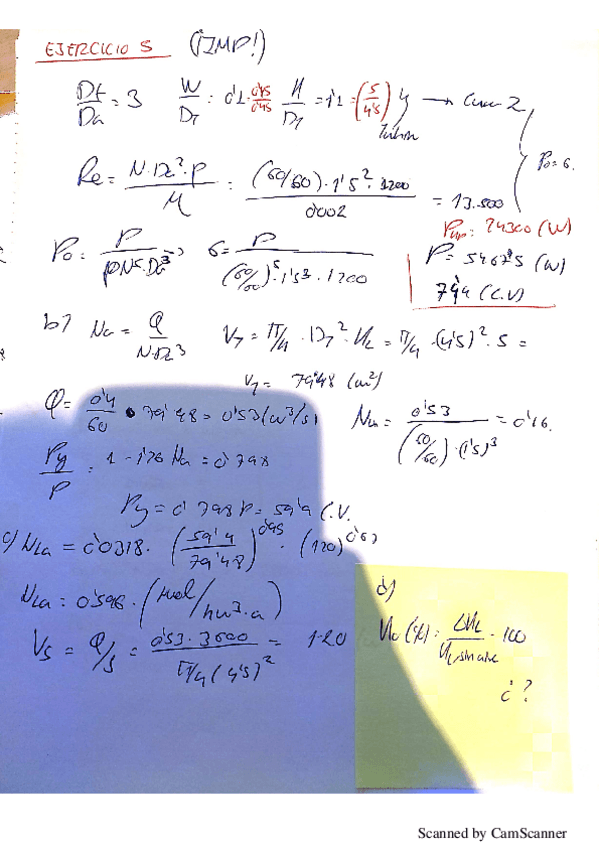 EJERCICIO 5 (¡IMP!)
Dt/Da = 3 W/DT = 0'1 · 0'45/0'45 H/DT = 1'1 = (5/4'5) y → Curva 2
Re = N·Da²·ρ/μ = (60/60)·1'5²·1200/0'002 = 13.500 Po = 6.
P = 24300 (W)
Po = P/ρN³·Da⁵ → 6 = P/(60/60)³·1'5⁵·1200 P = 54675 (W)
74'4 (C.V)
b) Na = Q/N·Da³ VT = π/4 · DT² · HL = π/4 · (4'5)² · 5 =
VT = 79'48 (m³)
Q = 0'4/60 · 79'48 = 0'53 (m³/s) Na = 0'53/(60/60)·(1'5)³ = 0'16.
Pg/P = 1 - 1'26 Na = 0'798
Pg = 0'798 P = 59'4 C.V.
c) NLa = 0'0318 · (59'4/79'48)^0'95 · (120)^0'67
NLa = 0'596 · (mol/h m³·a)
Vs = Q/S = 0'53·3600/π/4 (4'5)² = 120
d)
HL (%) = ΔHL/HL sin aire · 100
¿?
Scanned by CamScanner